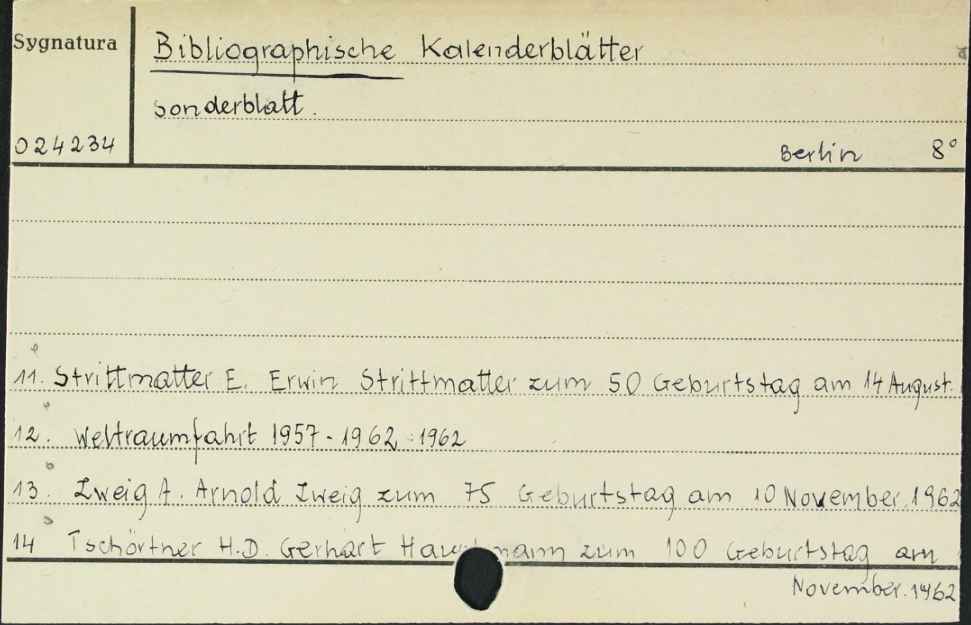 Sygnatura
Bibliographische Kalenderblätter
sonderblatt.
024234
Berlin 8°
11. Strittmatter E. Erwin Strittmatter zum 50 Geburtstag am 14 August.
12. Weltraumfahrt 1957-1962 : 1962
13. Zweig A. Arnold Zweig zum 75 Geburtstag am 10 November.1962
14 Tschörtner H.D. Gerhart Hauptmann zum 100 Geburtstag am
November.1962